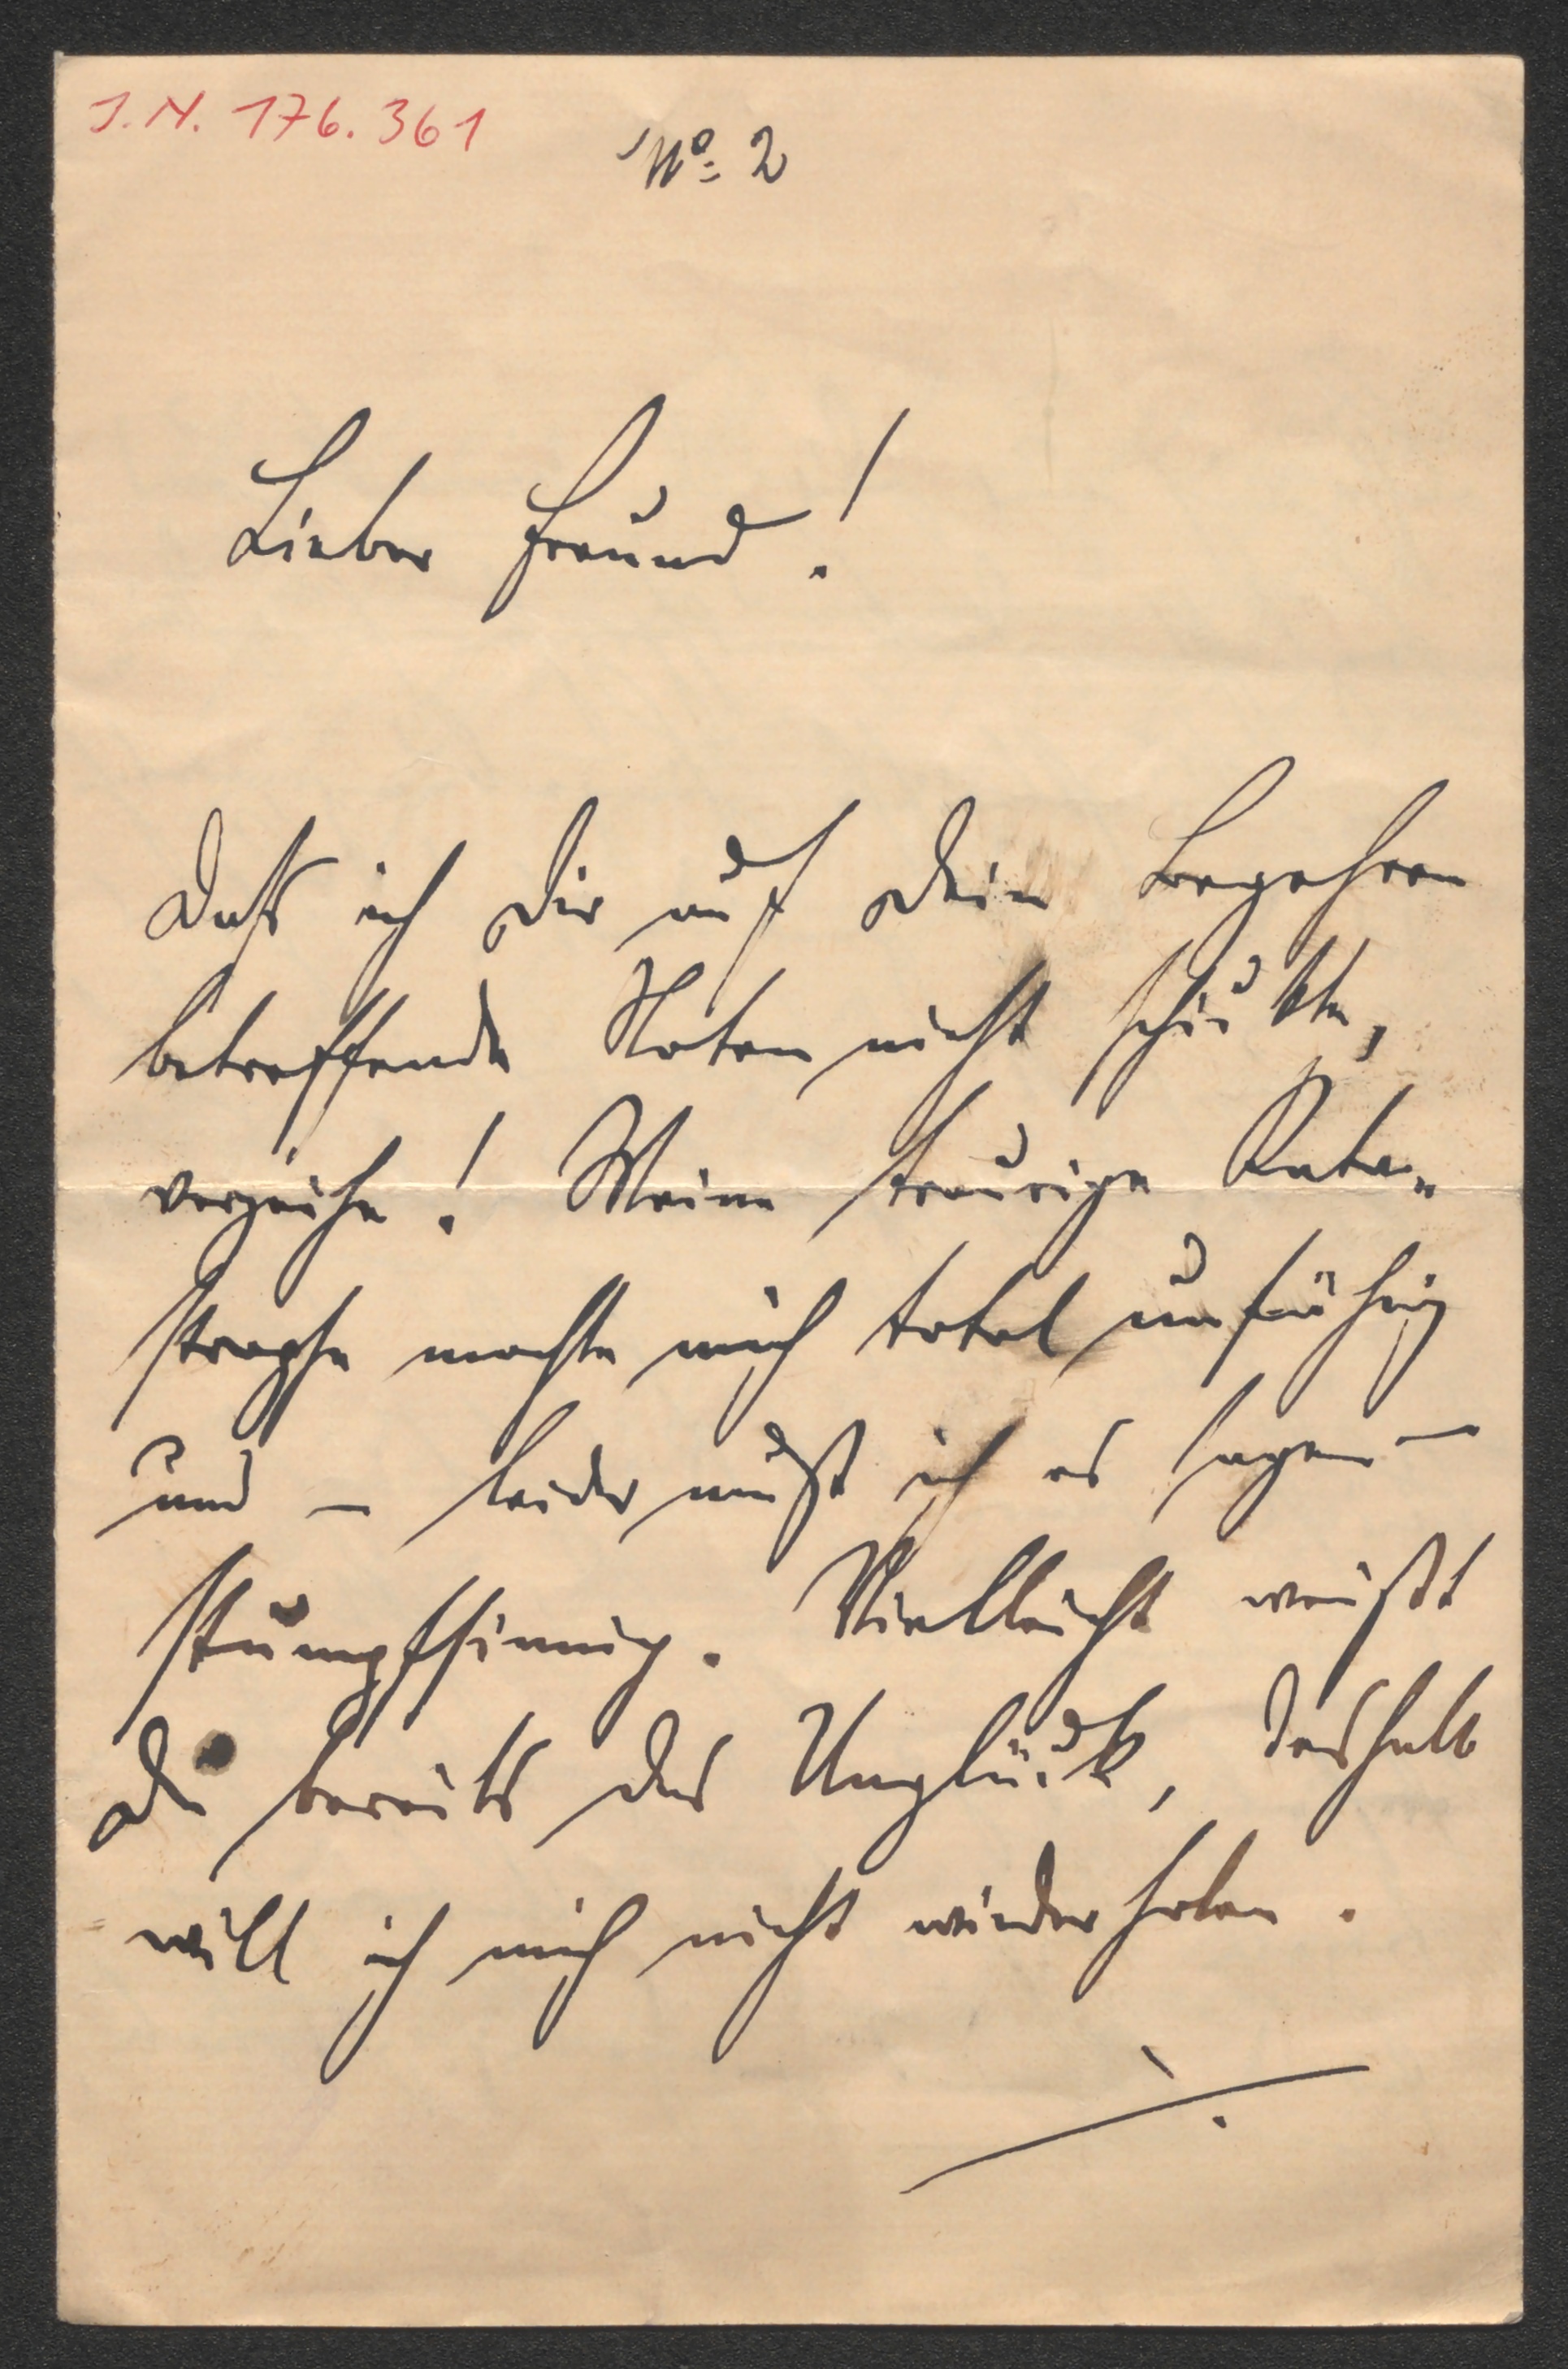 J.N. 176.361
No: 2
Lieber Freund!
Daß ich Dir auf Dein Begehren
betreffende Noten nicht schickte,
verzeihe! Meine traurige Kata-
strophe machte mich total unfähig
und – leider muß ich es sagen –
stumpfsinnig. Vielleicht weißt
Du bereits das Unglück, deshalb
will ich mich nicht wiederholen.